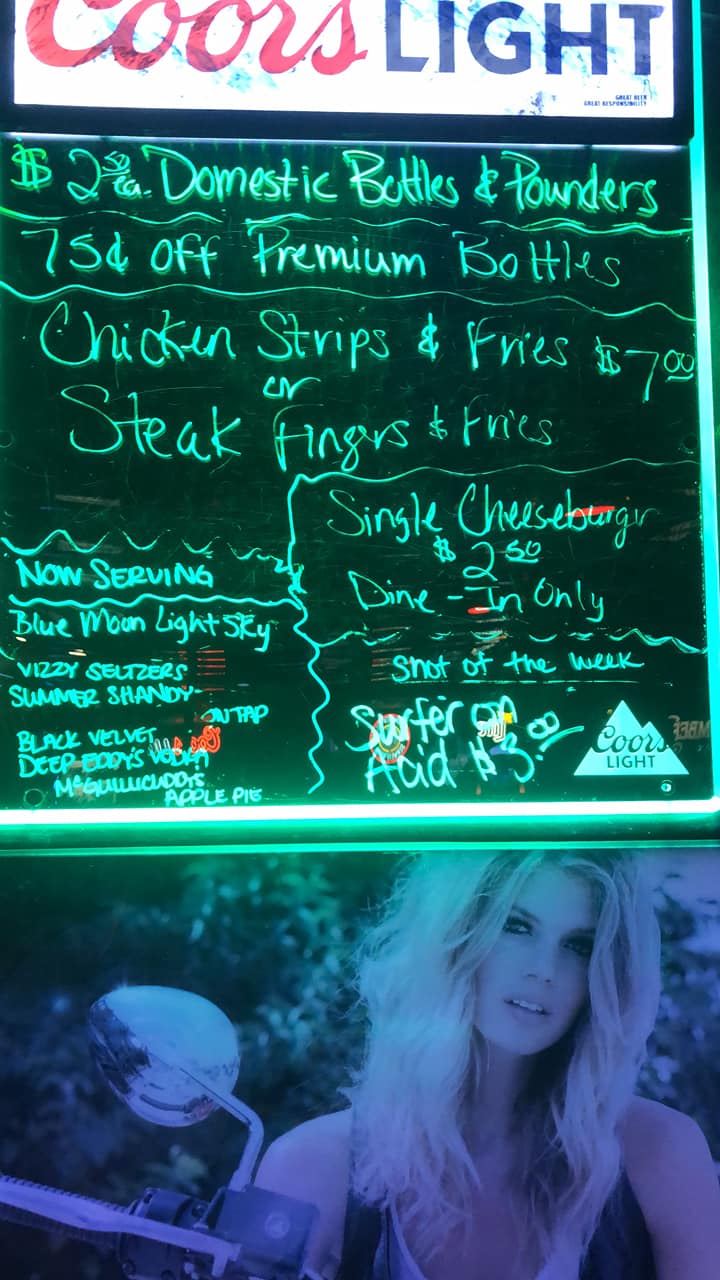 Coors LIGHT
GREAT BEER
GREAT RESPONSIBILITY
$ 2.50 ea. Domestic Bottles & Pounders
75¢ off Premium Bottles
Chicken Strips & Fries $7.00
or
Steak Fingers & Fries
Single Cheeseburger
$ 2.50
Dine-In Only
NOW SERVING
Blue Moon Light Sky
VIZZY SELTZERS
SUMMER SHANDY-
ON TAP
BLACK VELVET
DEEP EDDY'S VODKA
McGUILLICUDDY'S
APPLE PIE
Shot of the week
Surfer on
Acid $3.
Coors
LIGHT